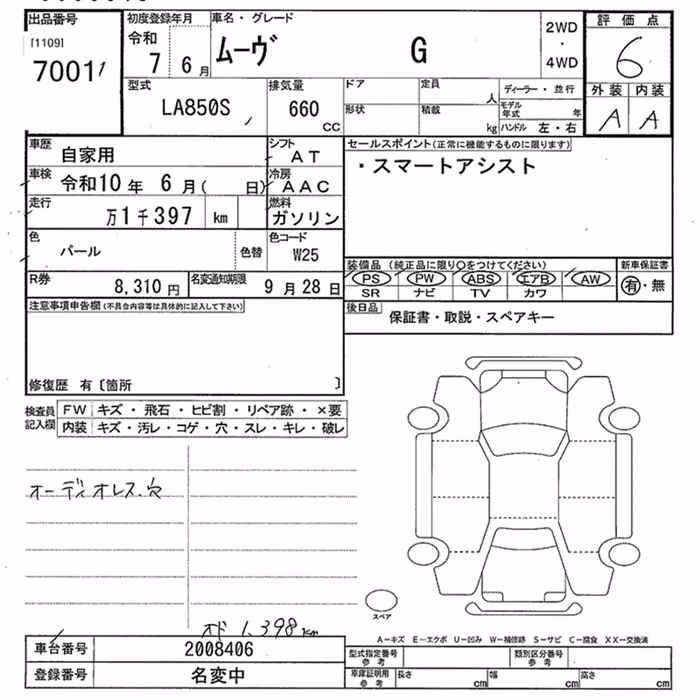 出品番号
[1109]
7001
初度登録年月
令和
7 6月
車名・グレード
ムーヴ G
2WD
・
4WD
評価点
6
外装 内装
A A
型式
LA850S
排気量
660
CC
ドア
定員
人
形状
積載
kg
ディーラー・並行
モデル年式 年
ハンドル 左・右
車歴
自家用
シフト
AT
車検
令和10年 6月( 日)
冷房
AAC
走行
万1千397 km
燃料
ガソリン
色
パール
色替
色コード
W25
R券
8,310円
名変通知期限
9月28日
セールスポイント(正常に機能するものに限ります)
・スマートアシスト
装備品 (純正品に限り○をつけてください)
新車保証書
PS PW ABS エアB AW
SR ナビ TV カワ
有・無
後日品
保証書・取説・スペアキー
注意事項申告欄(不具合内容等は具体的に記入して下さい)
修復歴 有〔箇所 〕
検査員
記入欄
FW キズ・飛石・ヒビ割・リペア跡・×要
内装 キズ・汚レ・コゲ・穴・スレ・キレ・破レ
オーディオレス穴
オド 1,398km
スペア
A−キズ E−エクボ U−凹み W−補修跡 S−サビ C−腐食 XX−交換済
車台番号
2008406
登録番号
名変中
型式指定番号
参考
類別区分番号
参考
車庫証明用
参考
長さ cm
幅 cm
高さ cm